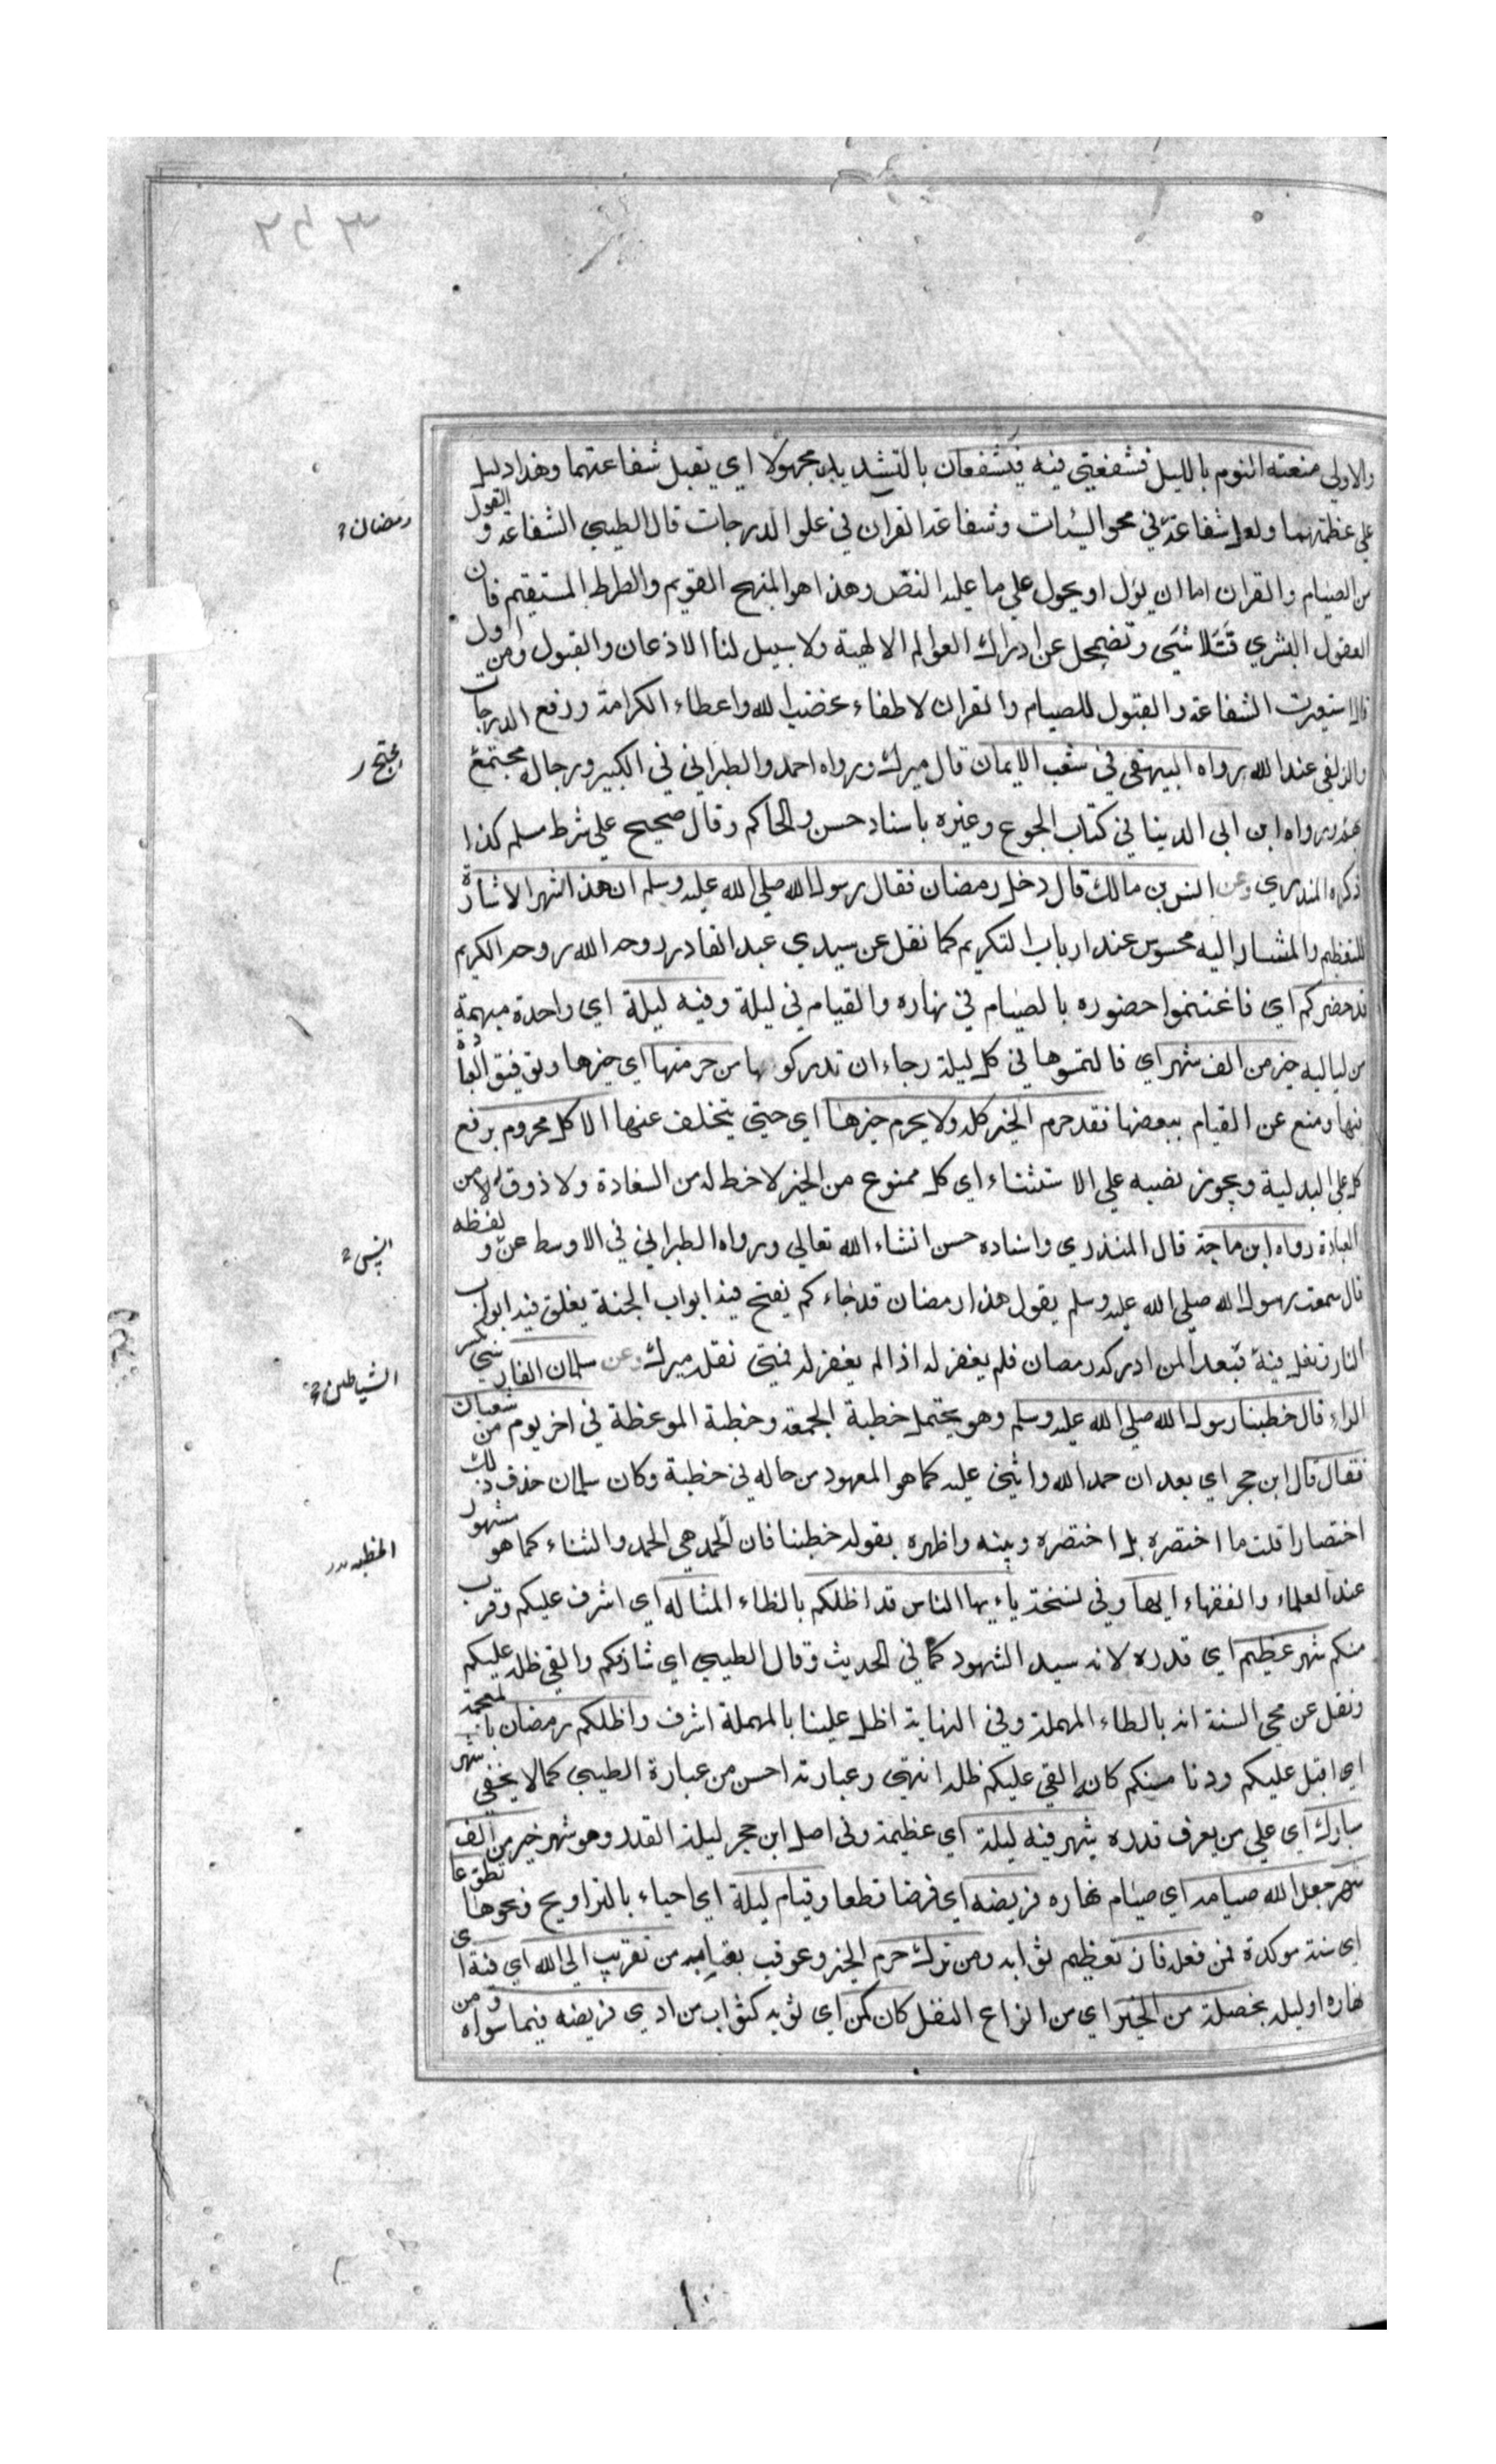 والاولي منعته النوم بالليل فشفعني فيه فيشفعان بالتشديد مجهولا اي تقبل شفاعتهما وهذا دليل
علي عظمتهما ولعل شفاعة في محو السيئات وشفاعة القران في علو الدرجات قال الطيبي الشفاعة و القول
رمضان
من الصيام والقران اما ان يؤل او يحول علي ما عليه النص وهذا هو المنهج القويم والطرط المستقيم فان
العقول البشري تتلاشي وتضمحل عن ادراك العوالم الالهية ولا سبيل لنا الا الاذعان والقبول ومن اول
قال استعيرت الشفاعة والقبول للصيام والقران لاطفاء غضب الله واعطاء الكرامة ورفع الدرجات
والزلفي عند الله رواه البيهقي في شعب الايمان قال ميرك ورواه احمد والطبراني في الكبير ورجاله محتج
بهم ورواه ابن ابي الدينا في كتاب الجوع وغيره باسناد حسن والحاكم وقال صحيح علي شرط مسلم كذا
ذكره المنذري وعن انس بن مالك قال دخل رمضان فقال رسول الله صلي الله عليه وسلم ان هذا الشهر الاشارة
للتعظيم والمشار اليه محسوس عند ارباب التكريم كما نقل عن سيدي عبد القادر روح الله روحه الكريم
قد حضركم اي فاغتنموا حضوره بالصيام في نهاره والقيام في ليلة وفيه ليلة اي واحدة مبهمة
من لياليه خير من الف شهر اي فالتمسوها في كل ليلة رجاء ان تدركوها من حرمها اي خيرها وتوفيق العبادة
فيها ومنع عن القيام ببعضها فقد حرم الخير كله ولا يحرم خيرها اي حتي يتخلف عنها الا كل محروم برفع
كل علي البدلية ويجوز نصبه علي الاستثناء اي كل ممنوع من الخير لا خط له من السعادة ولا ذوق له من
العبادة رواه ابن ماجة قال المنذري واسناده حسن انشاء الله تعالي ورواه الطبراني في الاوسط عن و لفظه
انس
قال سمعت رسول الله صلي الله عليه وسلم يقول هذا رمضان قد جاءكم تفتح فيه ابواب الجنة يغلق فيه ابواب
النار وتغل فيه بعدا لمن ادرك رمضان فلم يغفر له اذا لم يغفر له فمتي نقله ميرك وعن سلمان الفارسي
الشياطين
الراء قال خطبنا رسول الله صلي الله عليه وسلم وهو يحتمل خطبة الجمعة وخطبة الموعظة في اخر يوم من شعبان
فقال قال ابن حجر اي بعد ان حمد الله واثني عليه كما هو المعهود من حاله في خطبة وكان سلمان حذف ذلك
اختصارا قلت ما اختصره بل اختصره وبينه واظهره بقوله خطبنا فان الحمد هي الحمد والثناء كما هو مشهور
الخطبة
عند العلماء والفقهاء ايها وفي نسخة ياءيها الناس قد اظلكم بالظاء المثاله اي اشرف عليكم وقرب
منكم شهر عظيم اي قدره لانه سيد الشهود كما في الحديث وقال الطيبي اي شارفكم والقي ظله عليكم
ونقل عن محي السنة انه بالطاء المهملة وفي النهاية اظل علينا بالمهملة اشرف واظلكم رمضان بالمعجمة
اي اقبل عليكم ودنا منكم كانه القي عليكم ظله انتهي وعبارته احسن من عبارة الطيبي كما لا يخفي شهر
مبارك اي علي من يعرف قدره شهر فيه ليلة اي عظيمة وفي اصل ابن حجر ليلة القدر وهو شهر خير من الف
شهر جعل الله صيامه اي صيام نهاره فريضه اي فرضا قطعا وقيام ليلة اي احياء بالتراويح ونحوها تطوعا
اي سنة موكدة فمن فعله فاز تعظيم ثوابه ومن ترك حرم الخير وعوقب بعتابه من تقرب الي الله اي فيه اي
نهاره او ليله بخصلة من الخير اي من انواع النفل كان كمن اي ثوبه كثواب من ادي فريضه فيما سواه ومن